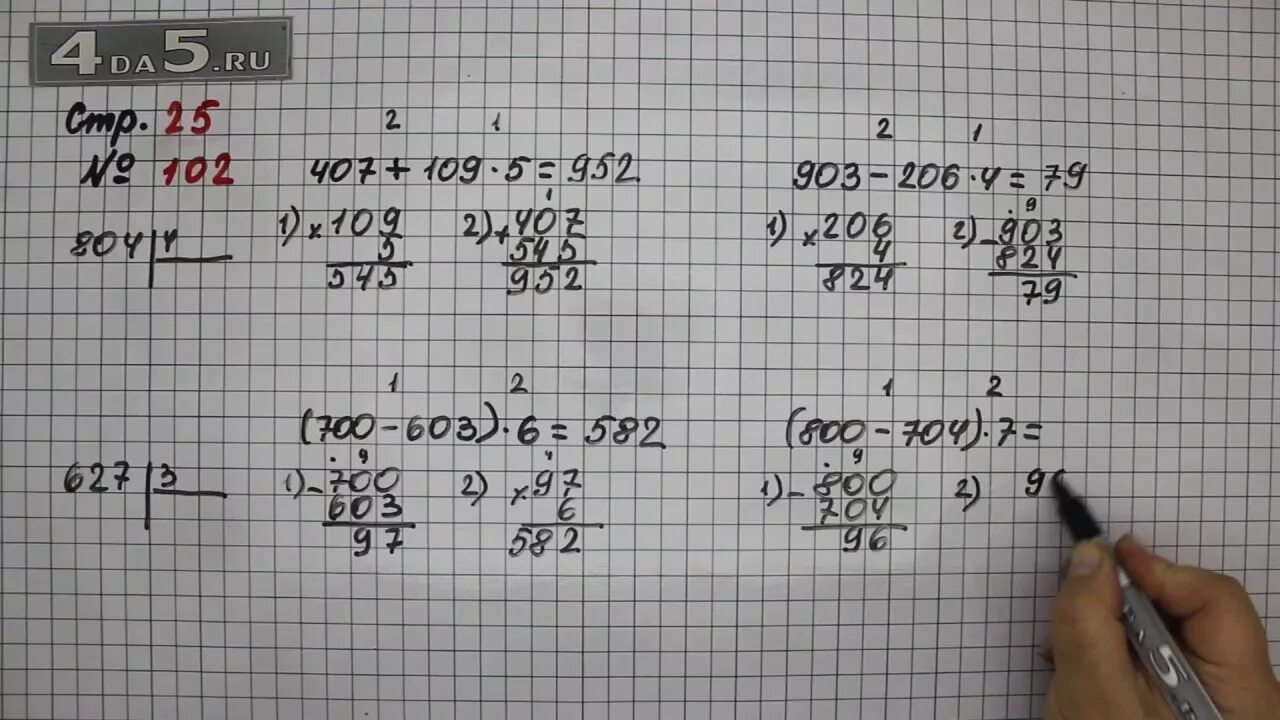 4DA5.RU
Стр. 25
№ 102
804 4
2 1
407 + 109 · 5 = 952
1) × 109
5
545
1
2) + 407
545
952
2 1
903 - 206 · 4 = 79
1) × 206
4
824
. 9
2) - 903
824
79
627 3
1 2
(700 - 603) · 6 = 582
. 9
1) - 700
603
97
4
2) × 97
6
582
1 2
(800 - 704) · 7 =
. 9
1) - 800
704
96
2) 9